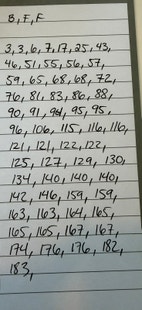 B, F, F
3, 3, 6, 7, 17, 25, 43,
46, 51, 55, 56, 57,
59, 65, 68, 68, 72,
76, 81, 83, 86, 88,
90, 91, 94, 95, 95,
96, 106, 115, 116, 116,
121, 121, 122, 122,
125, 127, 129, 130,
134, 140, 140, 140,
142, 146, 159, 159,
163, 163, 164, 165,
165, 165, 167, 167,
174, 176, 176, 182,
183,